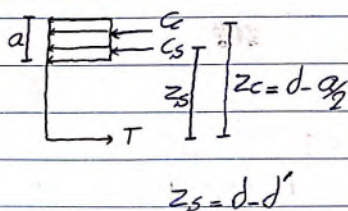 a
Cc
Cs
Zs
Zc = d - a/2
T
Zs = d - d'